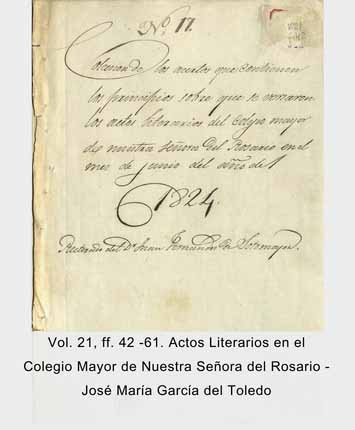 Nº 17.
Coleccion de los acertos que contienen
los principios sobre que se versaron
los actos literarios del Colegio mayor
de nuestra señora del Rosario en el
mes de junio del año de
1824.
Rectorado del Dr. Juan Fernandez de Sotomayor.
Vol. 21, ff. 42 -61. Actos Literarios en el
Colegio Mayor de Nuestra Señora del Rosario -
José María García del Toledo